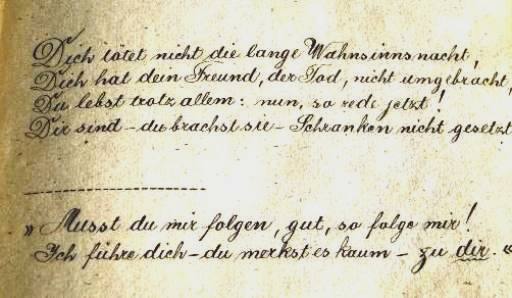 Dich tötet nicht die lange Wahnsinnsnacht,
Dich hat dein Freund, der Tod, nicht umgebracht,
Du lebst trotz allem: nun, so rede jetzt!
Dir sind – du brachst sie – Schranken nicht gesetzt
» Musst du mir folgen, gut, so folge mir!
Ich führe dich – du merkst es kaum – zu dir. «